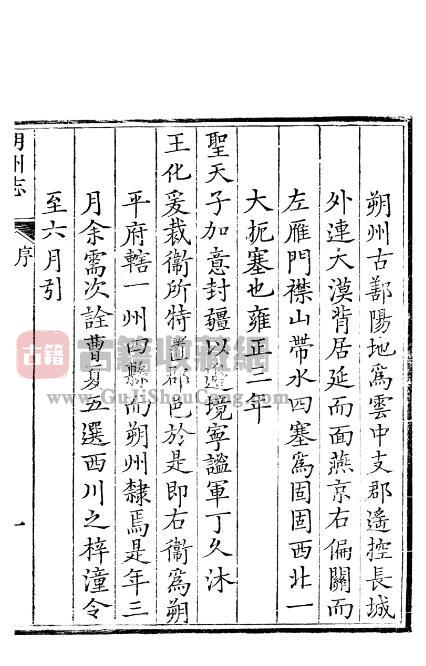 朔州古鄯陽地爲雲中支郡遙控長城
外連大漠背居延而面燕京右偏關而
左雁門襟山帶水四塞爲固固西北一
大扼塞也雍正三年
聖天子加意封疆以邊境寧謐軍丁久沐
王化爰裁衞所特置郡邑於是即右衞爲朔
平府轄一州四縣而朔州隸焉是年三
月余需次詮曹夏五選西川之梓潼令
至六月引
朔州志
序
一
古籍
古籍收藏網
www.GuJiShouCang.com